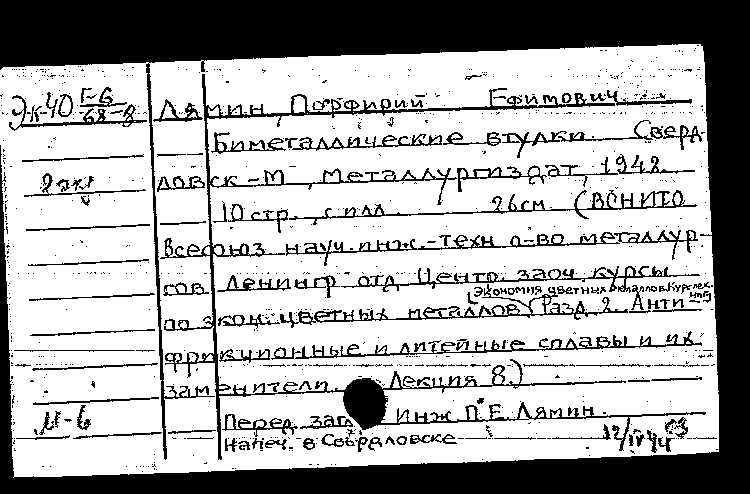 Эк40 Г-6/68-8
Лямин, Порфирий Ефимович.
Биметаллические втулки. Сверд-
2 экз
ловск-М, Металлургиздат, 1942.
10 стр., с илл. 26 см. (ВСНИТО
Всесоюз науч. инж.-техн о-во металлур-
гов Ленингр отд Центр. заоч. курсы
Экономия цветных металлов. Курс лек-
ций
по экон. цветных металлов Разд 2. Анти-
фрикционные и литейные сплавы и их
заменители. Лекция 8.)
М-6
Перед заг Инж П. Е. Лямин.
Напеч. в Свердловске
12/IV 44